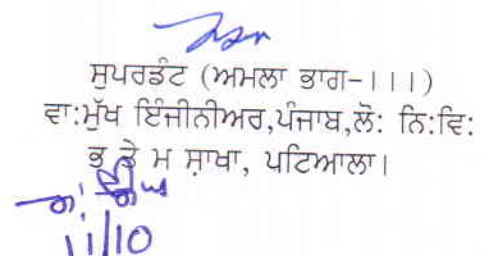 ਸੁਪਰਡੰਟ (ਅਮਲਾ ਭਾਗ-।।।)
ਵਾ:ਮੁੱਖ ਇੰਜੀਨੀਅਰ,ਪੰਜਾਬ,ਲੋ: ਨਿ:ਵਿ:
ਭ ਤੇ ਮ ਸ਼ਾਖਾ, ਪਟਿਆਲਾ।
11/10